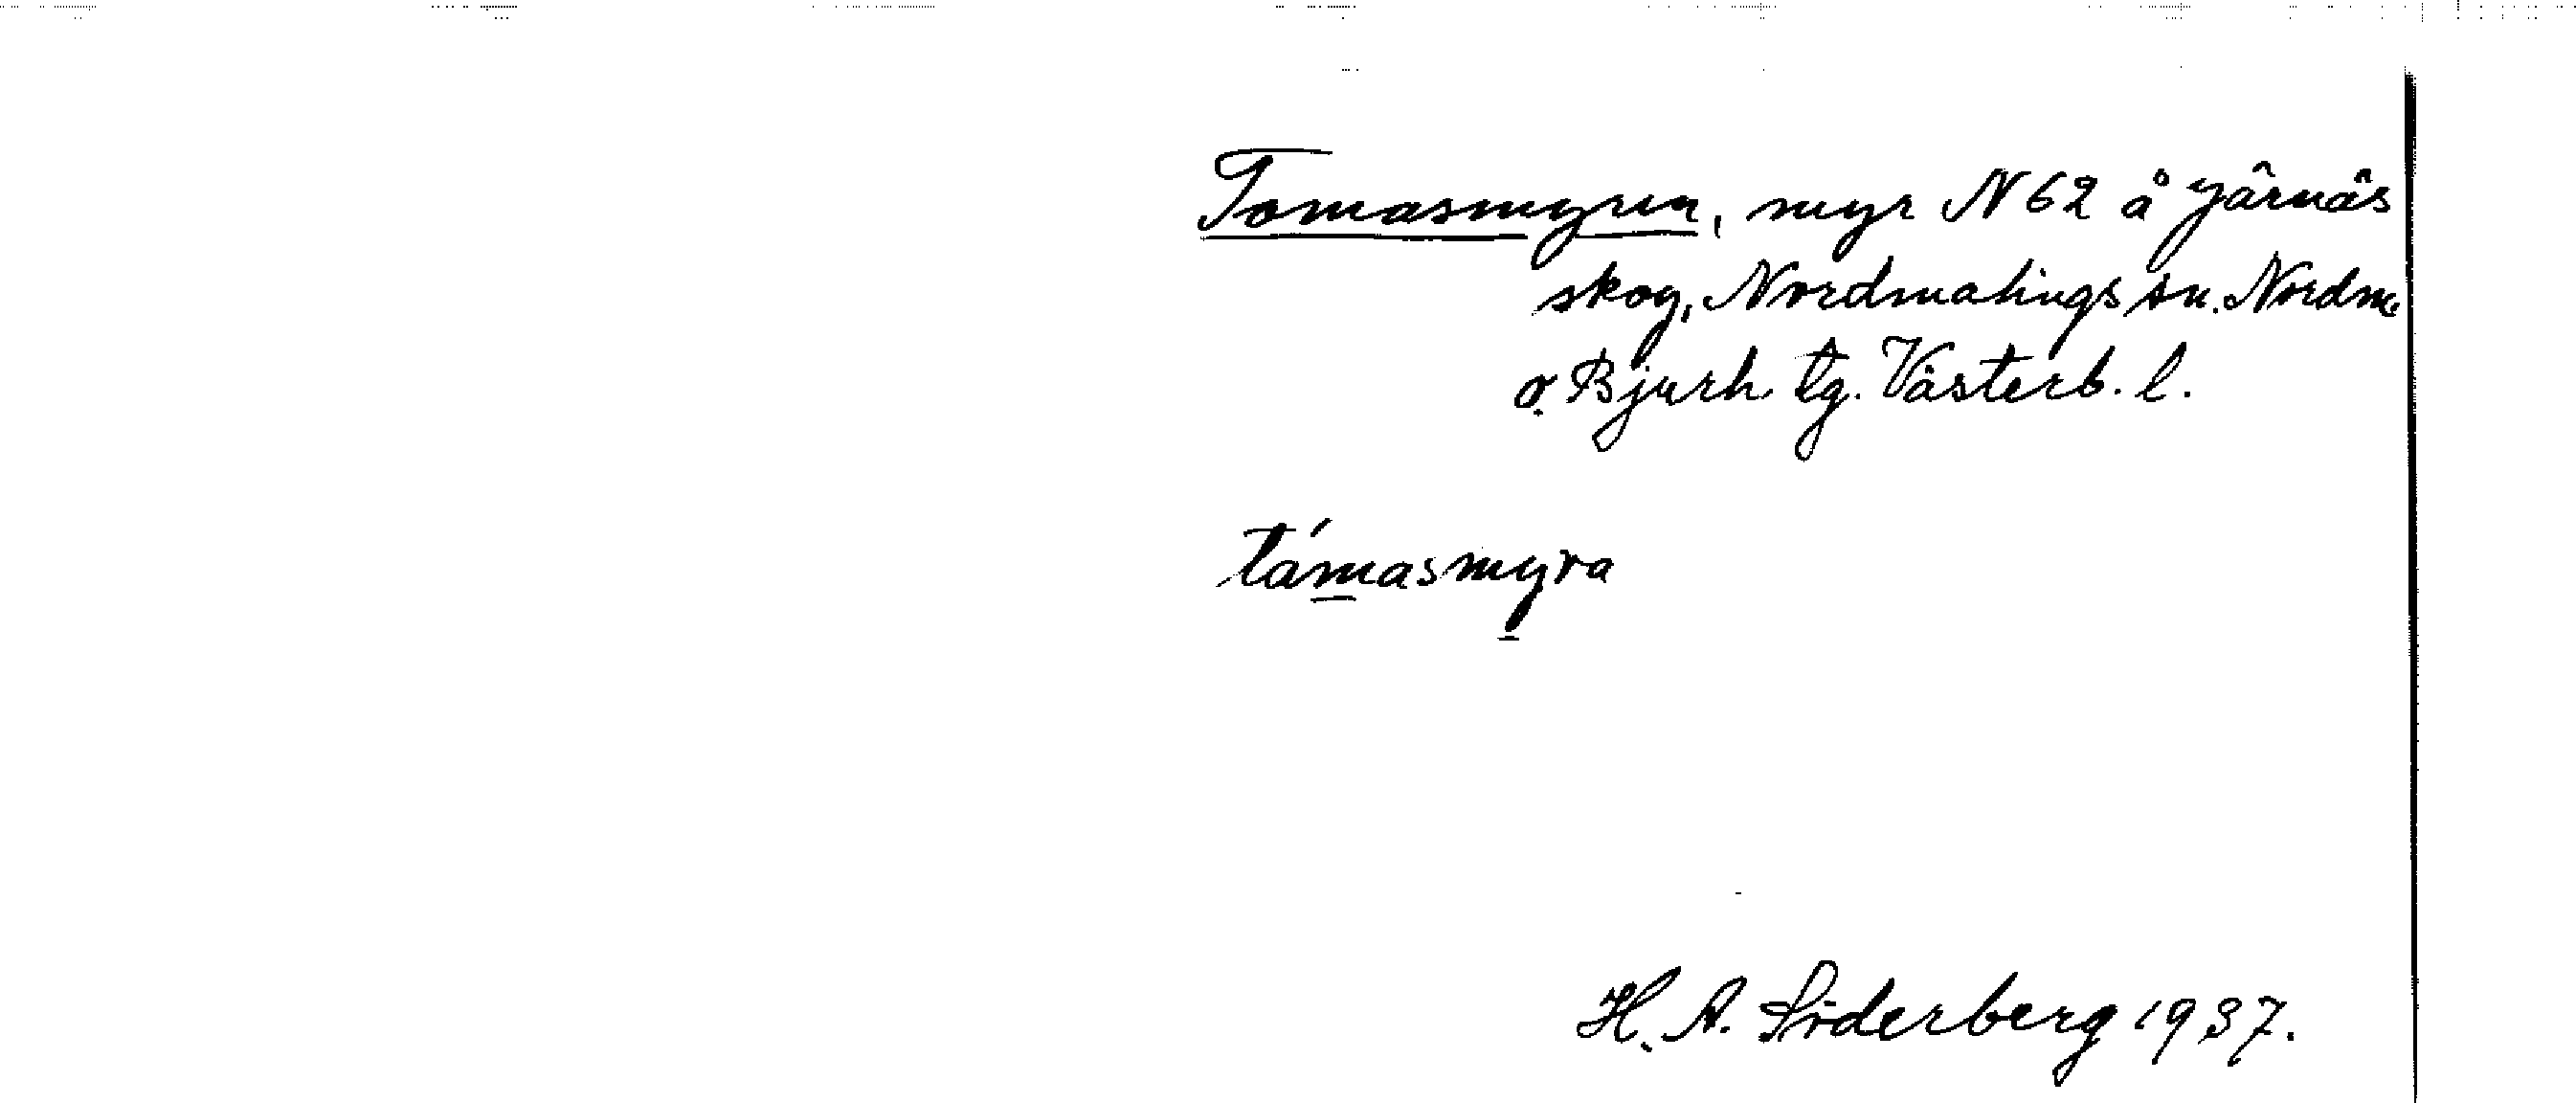 Tomasmyren, myr N 62 å Järnäs
skog, Nordmalings sn. Nordm.
o. Bjurh. tg. Västerb. l.
támasmyra
H. A. Söderberg 1937.